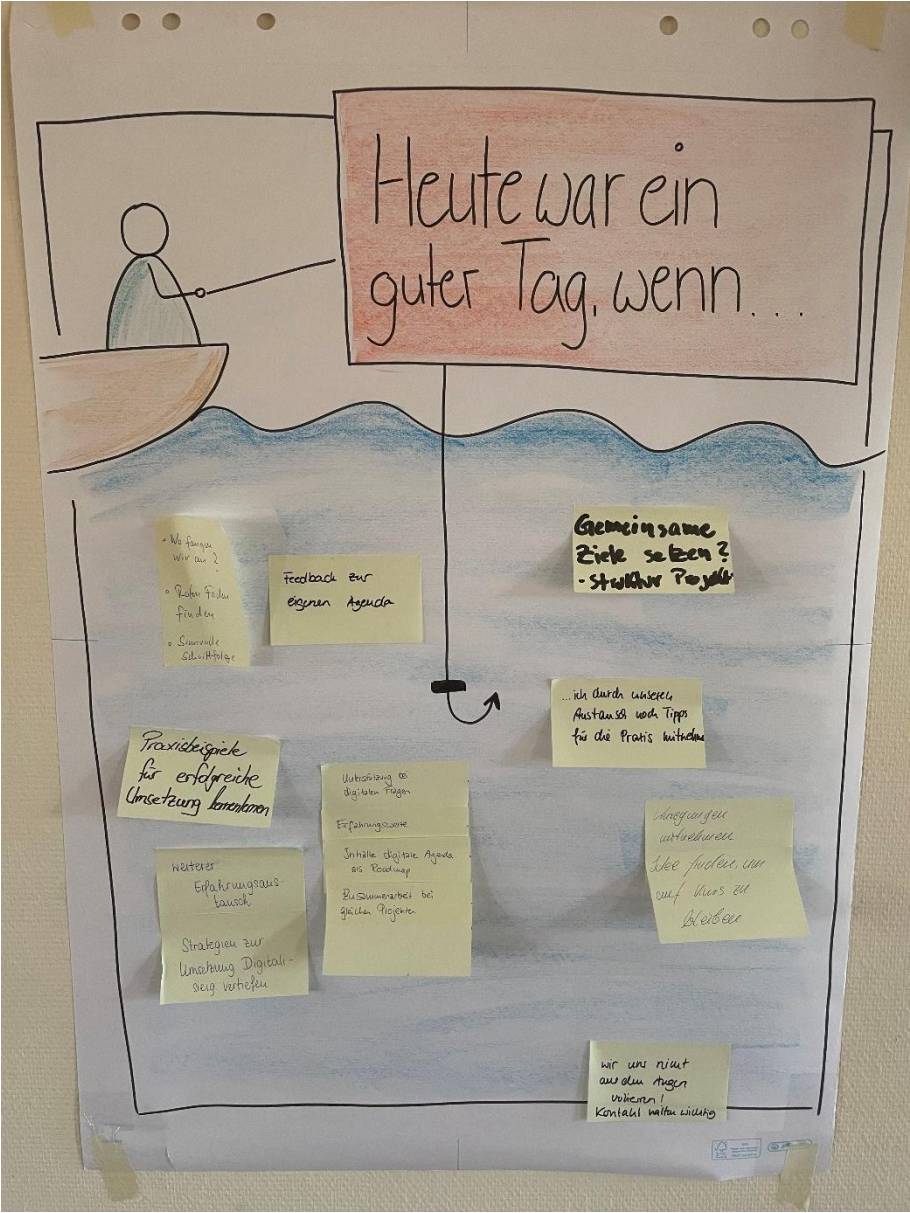 Heute war ein
guter Tag, wenn...
• Wo fangen
wir an?
• Roten Faden
finden
• Sinnvolle
Schrittfolge
Feedback zur
eigenen Agenda
Gemeinsame
Ziele setzen?
- Struktur Projekt
...ich durch unseren
Austausch noch Tipps
für die Praxis mitnehme
Praxisbeispiele
für erfolgreiche
Umsetzung kennenlernen
Unterstützung bei
digitalen Fragen
Erfahrungswerte
Inhalte digitale Agenda
als Roadmap
Zusammenarbeit bei
gleichen Projekten
weiterer
Erfahrungsaus-
tausch
Strategien zur
Umsetzung Digitali-
sierg vertiefen
Anregungen
mitnehmen
Idee finden, um
auf Kurs zu
bleiben
wir uns nicht
aus den Augen
verlieren!
Kontakt halten wichtig